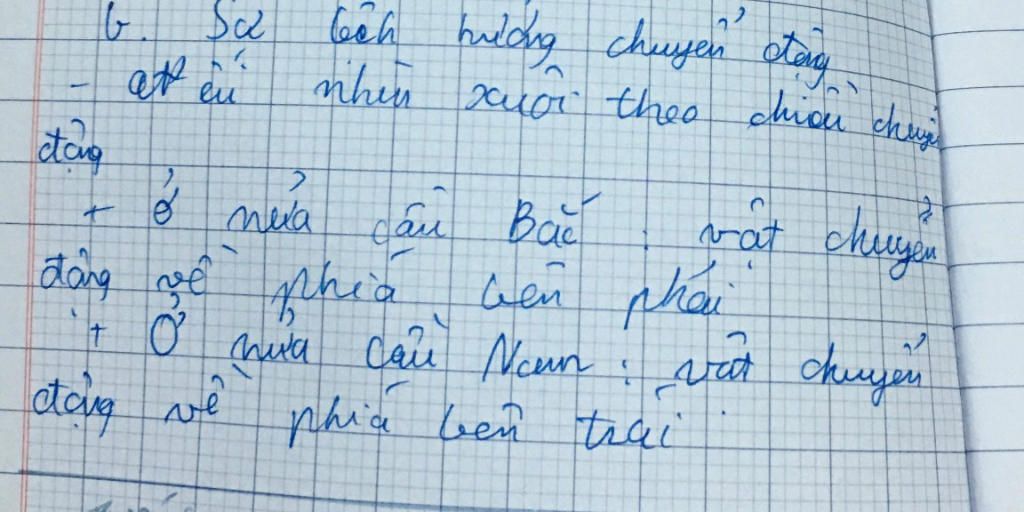 b. Sự lệch hướng chuyển động
- nếu nhìn xuôi theo chiều chuyển
động
+ Ở nửa cầu Bắc: vật chuyển
động về phía bên phải
+ Ở nửa cầu Nam: vật chuyển
động về phía bên trái